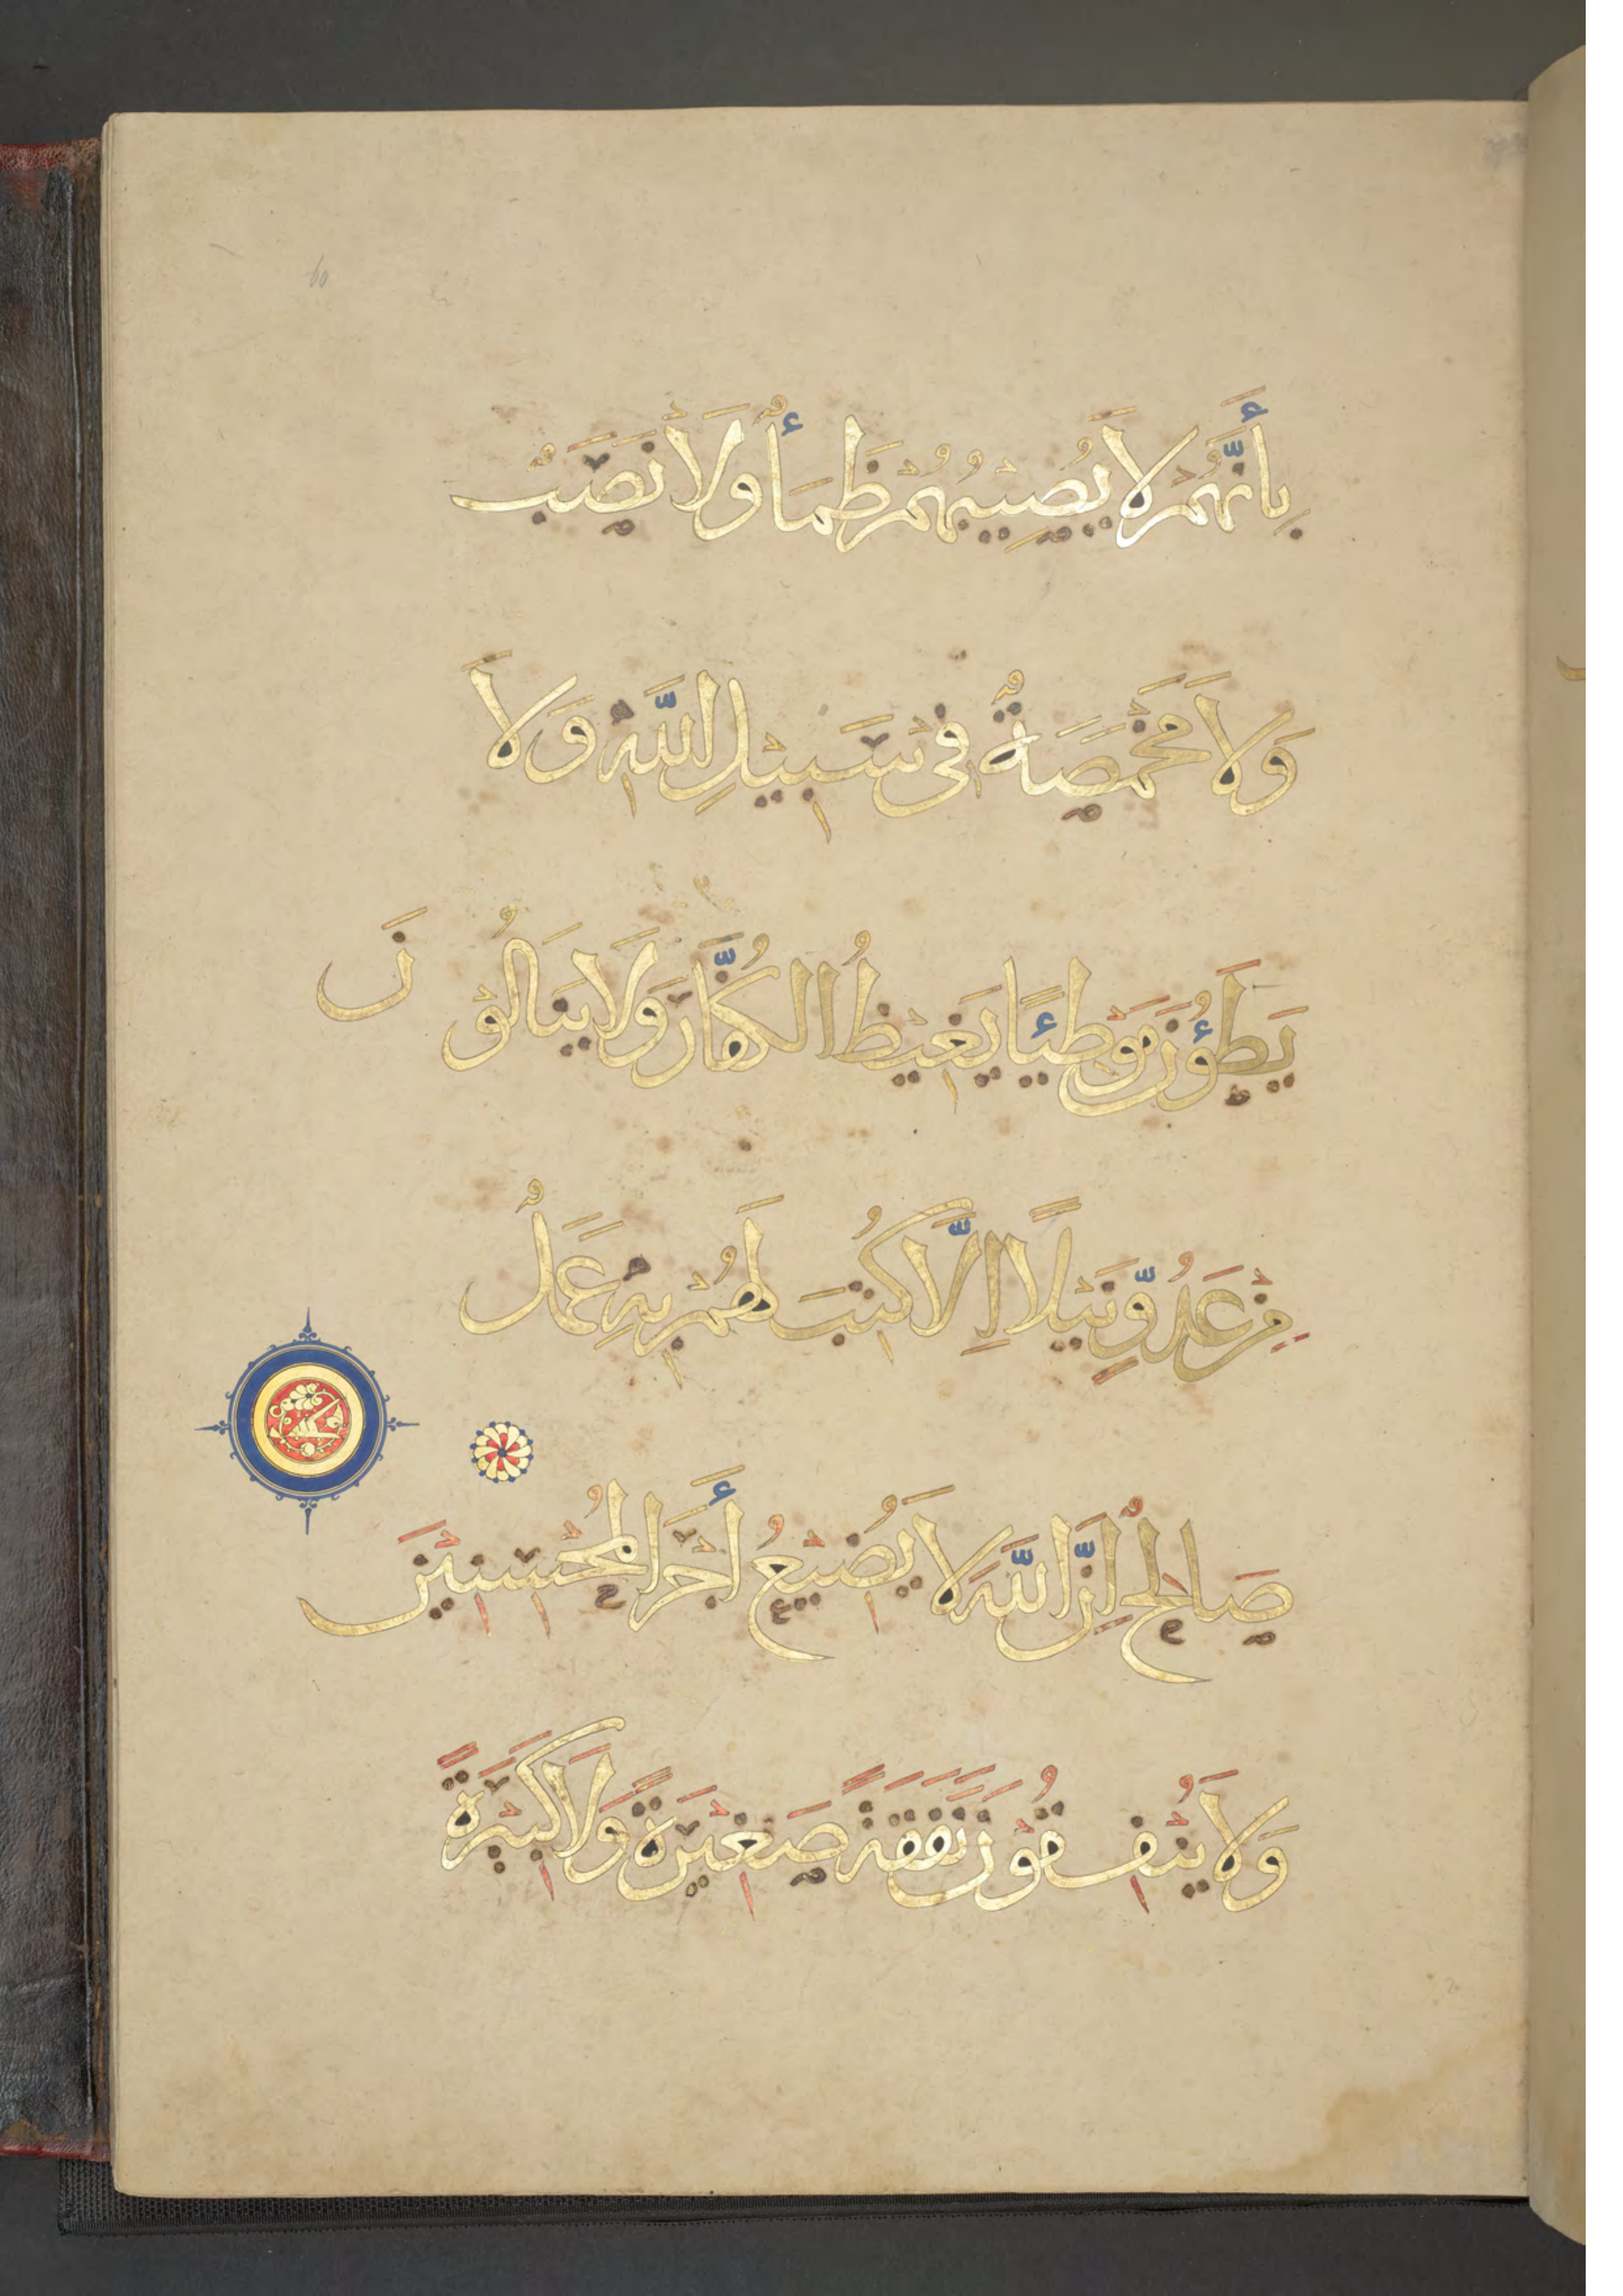 بِأَنَّهُمْ لَا يُصِيْبُهُمْ ظَمَأٌ وَلَا نَصَبٌ
وَلَا مَخْمَصَةٌ فِي سَبِيْلِ اللَّهِ وَلَا
يَطَؤُنَ مَوْطِئًا يَغِيْظُ الْكُفَّارَ وَلَا يَنَالُوْنَ
مِنْ عَدُوٍّ نَيْلًا إِلَّا كُتِبَ لَهُمْ بِهِ عَمَلٌ
صَالِحٌ إِنَّ اللَّهَ لَا يُضِيْعُ أَجْرَ الْمُحْسِنِيْنَ
وَلَا يُنْفِقُوْنَ نَفَقَةً صَغِيْرَةً وَلَا كَبِيْرَةً